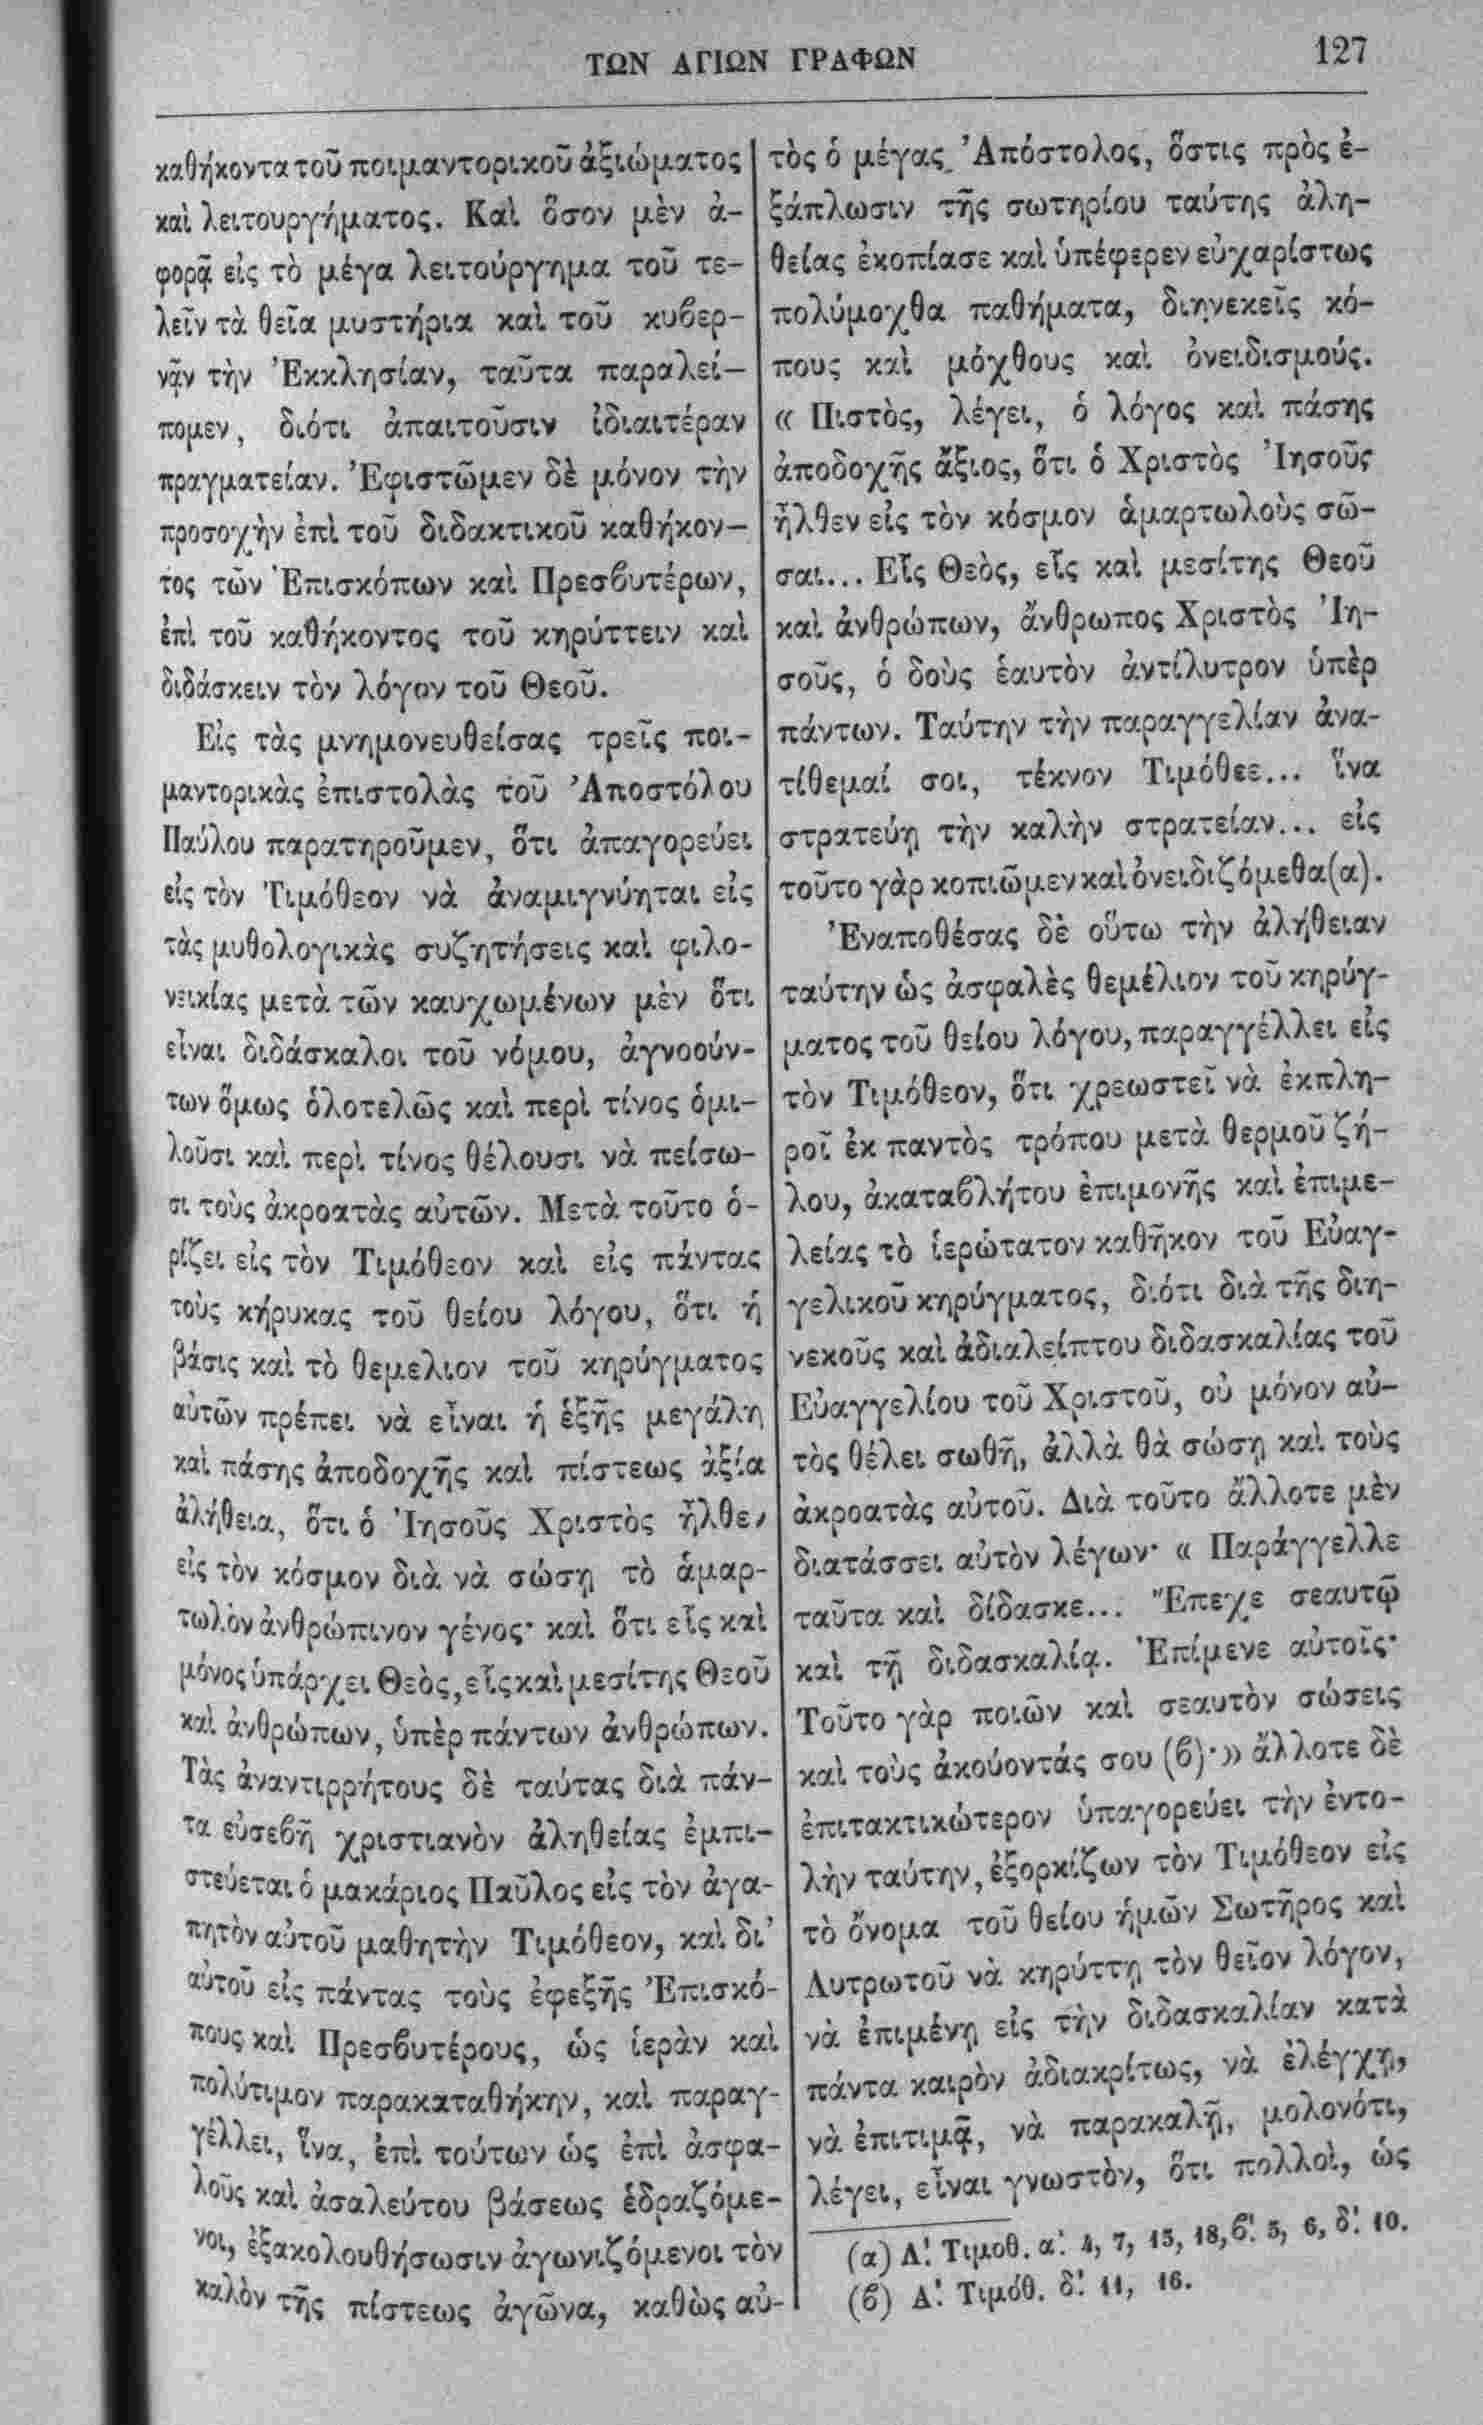 ΤΩΝ ΑΓΙΩΝ ΓΡΑΦΩΝ 127
καθήκοντα τοῦ ποιμαντορικοῦ ἀξιώματος
καὶ λειτουργήματος. Καὶ ὅσον μὲν ἀ-
φορᾷ εἰς τὸ μέγα λειτούργημα τοῦ τε-
λεῖν τὰ θεῖα μυστήρια καὶ τοῦ κυβερ-
νᾷν τὴν Ἐκκλησίαν, ταῦτα παραλεί-
πομεν, διότι ἀπαιτοῦσιν ἰδιαιτέραν
πραγματείαν. Ἐφιστῶμεν δὲ μόνον τὴν
προσοχὴν ἐπὶ τοῦ διδακτικοῦ καθήκον-
τος τῶν Ἐπισκόπων καὶ Πρεσβυτέρων,
ἐπὶ τοῦ καθήκοντος τοῦ κηρύττειν καὶ
διδάσκειν τὸν λόγον τοῦ Θεοῦ.
Εἰς τὰς μνημονευθείσας τρεῖς ποι-
μαντορικὰς ἐπιστολὰς τοῦ Ἀποστόλου
Παύλου παρατηροῦμεν, ὅτι ἀπαγορεύει
εἰς τὸν Τιμόθεον νὰ ἀναμιγνύηται εἰς
τὰς μυθολογικὰς συζητήσεις καὶ φιλο-
νεικίας μετὰ τῶν καυχωμένων μὲν ὅτι
εἶναι διδάσκαλοι τοῦ νόμου, ἀγνοούν-
των ὅμως ὁλοτελῶς καὶ περὶ τίνος ὁμι-
λοῦσι καὶ περὶ τίνος θέλουσι νὰ πείσω-
σι τοὺς ἀκροατὰς αὐτῶν. Μετὰ τοῦτο ὁ-
ρίζει εἰς τὸν Τιμόθεον καὶ εἰς πάντας
τοὺς κήρυκας τοῦ θείου λόγου, ὅτι ἡ
βάσις καὶ τὸ θεμελιον τοῦ κηρύγματος
αὐτῶν πρέπει νὰ εἶναι ἡ ἑξῆς μεγάλη
καὶ πάσης ἀποδοχῆς καὶ πίστεως ἀξία
ἀλήθεια, ὅτι ὁ Ἰησοῦς Χριστὸς ἦλθεν
εἰς τὸν κόσμον διὰ νὰ σώσῃ τὸ ἁμαρ-
τωλὸν ἀνθρώπινον γένος· καὶ ὅτι εἷς καὶ
μόνος ὑπάρχει Θεὸς, εἷς καὶ μεσίτης Θεοῦ
καὶ ἀνθρώπων, ὑπὲρ πάντων ἀνθρώπων.
Τὰς ἀναντιρρήτους δὲ ταύτας διὰ πάν-
τα εὐσεβῆ χριστιανὸν ἀληθείας ἐμπι-
στεύεται ὁ μακάριος Παῦλος εἰς τὸν ἀγα-
πητὸν αὐτοῦ μαθητὴν Τιμόθεον, καὶ δι᾿
αὐτοῦ εἰς πάντας τοὺς ἐφεξῆς Ἐπισκό-
πους καὶ Πρεσβυτέρους, ὡς ἱερὰν καὶ
πολύτιμον παρακαταθήκην, καὶ παραγ-
γέλλει, ἵνα, ἐπὶ τούτων ὡς ἐπὶ ἀσφα-
λοῦς καὶ ἀσαλεύτου βάσεως ἑδραζόμε-
νοι, ἐξακολουθήσωσιν ἀγωνιζόμενοι τὸν
καλὸν τῆς πίστεως ἀγῶνα, καθὼς αὐ-
τὸς ὁ μέγας Ἀπόστολος, ὅστις πρὸς ἐ-
ξάπλωσιν τῆς σωτηρίου ταύτης ἀλη-
θείας ἐκοπίασε καὶ ὑπέφερεν εὐχαρίστως
πολύμοχθα παθήματα, διηνεκεῖς κό-
πους καὶ μόχθους καὶ ὀνειδισμούς.
« Πιστὸς, λέγει, ὁ λόγος καὶ πάσης
ἀποδοχῆς ἄξιος, ὅτι ὁ Χριστὸς Ἰησοῦς
ἦλθεν εἰς τὸν κόσμον ἁμαρτωλοὺς σῶ-
σαι... Εἷς Θεὸς, εἷς καὶ μεσίτης Θεοῦ
καὶ ἀνθρώπων, ἄνθρωπος Χριστὸς Ἰη-
σοῦς, ὁ δοὺς ἑαυτὸν ἀντίλυτρον ὑπὲρ
πάντων. Ταύτην τὴν παραγγελίαν ἀνα-
τίθεμαί σοι, τέκνον Τιμόθεε... ἵνα
στρατεύῃ τὴν καλὴν στρατείαν... εἰς
τοῦτο γὰρ κοπιῶμεν καὶ ὀνειδιζόμεθα(α).
Ἐναποθέσας δὲ οὕτω τὴν ἀλήθειαν
ταύτην ὡς ἀσφαλὲς θεμέλιον τοῦ κηρύγ-
ματος τοῦ θείου λόγου, παραγγέλλει εἰς
τὸν Τιμόθεον, ὅτι χρεωστεῖ νὰ ἐκπλη-
ροῖ ἐκ παντὸς τρόπου μετὰ θερμοῦ ζή-
λου, ἀκαταβλήτου ἐπιμονῆς καὶ ἐπιμε-
λείας τὸ ἱερώτατον καθῆκον τοῦ Εὐαγ-
γελικοῦ κηρύγματος, διότι διὰ τῆς διη-
νεκοῦς καὶ ἀδιαλείπτου διδασκαλίας τοῦ
Εὐαγγελίου τοῦ Χριστοῦ, οὐ μόνον αὐ-
τὸς θέλει σωθῆ, ἀλλὰ θὰ σώσῃ καὶ τοὺς
ἀκροατὰς αὐτοῦ. Διὰ τοῦτο ἄλλοτε μὲν
διατάσσει αὐτὸν λέγων· « Παράγγελλε
ταῦτα καὶ δίδασκε... Ἔπεχε σεαυτῷ
καὶ τῇ διδασκαλίᾳ. Ἐπίμενε αὐτοῖς·
Τοῦτο γὰρ ποιῶν καὶ σεαυτὸν σώσεις
καὶ τοὺς ἀκούοντάς σου (β)·» ἄλλοτε δὲ
ἐπιτακτικώτερον ὑπαγορεύει τὴν ἐντο-
λὴν ταύτην, ἐξορκίζων τὸν Τιμόθεον εἰς
τὸ ὄνομα τοῦ θείου ἡμῶν Σωτῆρος καὶ
Λυτρωτοῦ νὰ κηρύττῃ τὸν θεῖον λόγον,
νὰ ἐπιμένῃ εἰς τὴν διδασκαλίαν κατὰ
πάντα καιρὸν ἀδιακρίτως, νὰ ἐλέγχῃ,
νὰ ἐπιτιμᾷ, νὰ παρακαλῇ, μολονότι,
λέγει, εἶναι γνωστὸν, ὅτι πολλοὶ, ὡς
(α) Α΄. Τιμοθ. α΄. 4, 7, 15, 18, β΄. 5, 6, δ΄. 10.
(β) Α΄. Τιμόθ. δ΄. 11, 16.